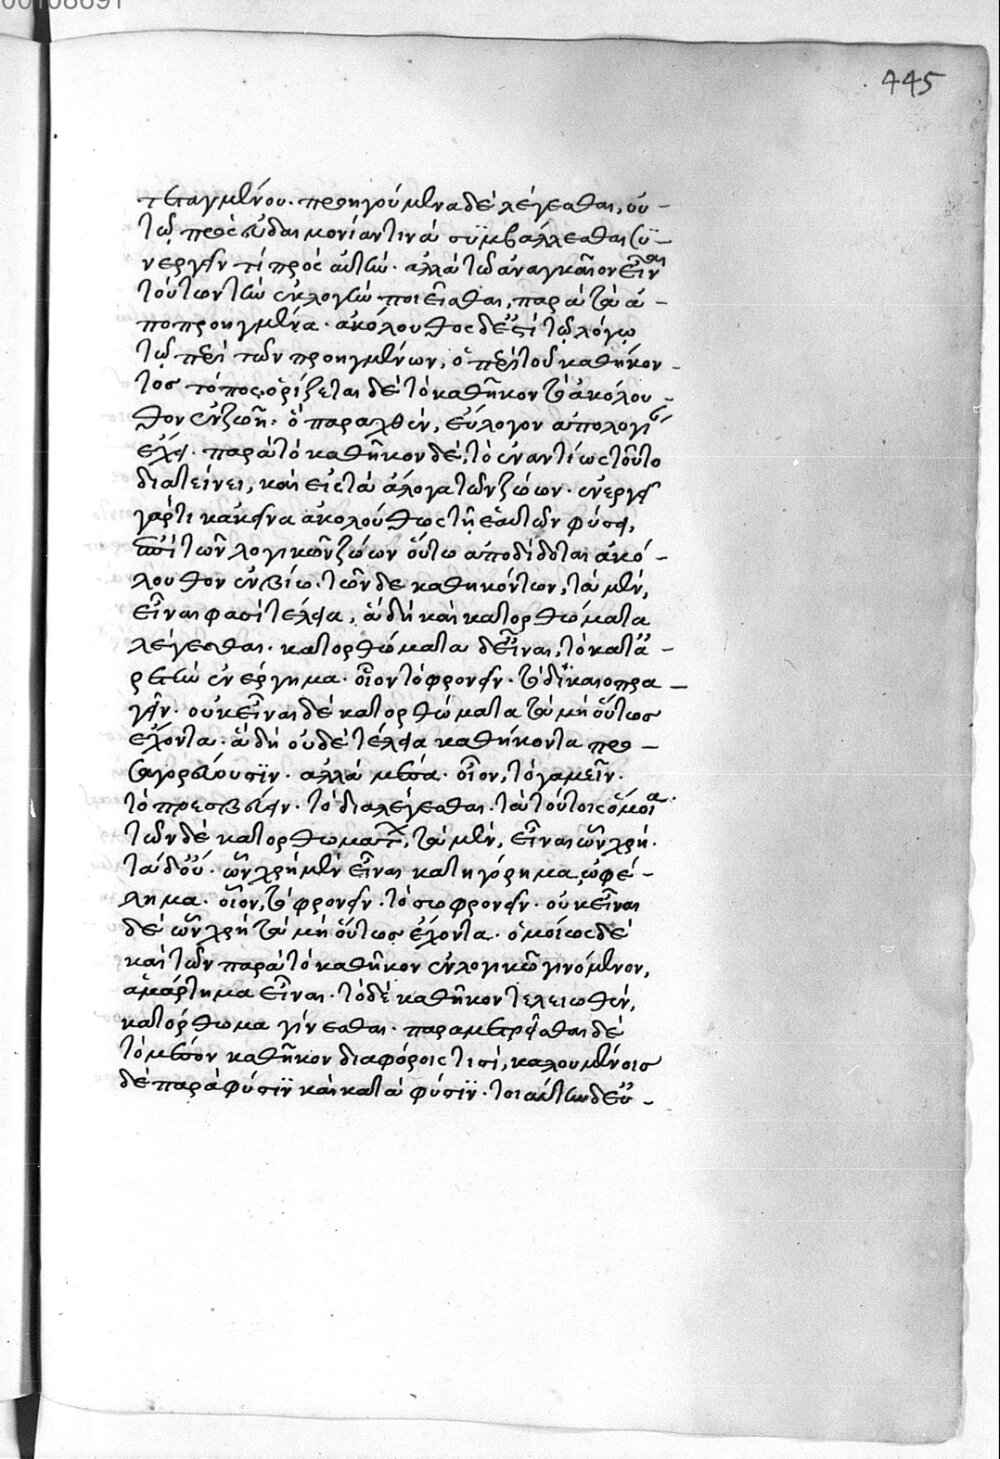 00108691
445
τεταγμένου. προηγούμενα δὲ λέγεσθαι, οὐ -
τῷ πρὸς εὐδαιμονίαν τινὰ συμβάλλεσθαι συ -
νεργεῖν τὶ πρὸς αὐτήν. ἀλλὰ τῶ ἀναγκαῖον εἶναι
τούτων τὴν ἐκλογὴν ποιεῖσθαι, παρὰ τὰ ἀ -
ποπροηγμένα. ἀκόλουθος δ' ἐστὶ τῷ λόγῳ
τῷ περὶ τῶν προηγμένων, ὁ περὶ τοῦ καθήκον -
τος τόπος. ὁρίζεται δὲ τὸ καθῆκον τὸ ἀκόλου -
θον ἐν ζωῆ. ὃ παραχθὲν, εὔλογον ἀπολογίαν
ἔχει. παρὰ τὸ καθῆκον δὲ, τὸ ἐναντίως τοῦτο
διατείνει, καὶ εἰς τὰ ἄλογα τῶν ζώων. ἐνεργεῖ
γάρ τι κἀκεῖνα ἀκολούθως τῆ ἑαυτῶν φύσει,
ἐπὶ τῶν λογικῶν ζώων οὕτω ἀποδίδοται ἀκό -
λουθον ἐν βίω. τῶν δὲ καθηκόντων, τὰ μὲν,
εἶναι φασὶ τέλεια, ἃ δὴ καὶ κατορθώματα
λέγεσθαι. κατορθώματα δ' εἶναι, τὸ κατ' ἀ -
ρετὴν ἐνέργημα. οἷον τὸ φρονεῖν. τὸ δικαιοπρα -
γεῖν. οὐκ εἶναι δὲ κατορθώματα τὰ μὴ οὕτως
ἔχοντα. ἃ δὴ οὐδὲ τέλεια καθήκοντα προ -
σαγορεύουσιν. ἀλλὰ μέσα. οἷον, τὸ γαμεῖν.
τὸ πρεσβεύειν. τὸ διαλέγεσθαι. τὰ τούτοις ὅμοια.
τῶν δὲ κατορθωμάτων, τὰ μὲν, εἶναι ὧν χρή.
τὰ δ' οὔ. ὧν χρὴ μὲν εἶναι κατηγόρημα, ὠφέ -
λημα. οἷον, τὸ φρονεῖν. τὸ σωφρονεῖν. οὐκ εἶναι
δὲ ὧν χρὴ τὰ μὴ οὕτως ἔχοντα. ὁμοίως δὲ
καὶ τῶν παρὰ τὸ καθῆκον ἐν λογικῶ γινόμενον,
ἁμάρτημα εἶναι. τὸ δὲ καθῆκον τελειωθὲν,
κατόρθωμα γίνεσθαι. παραμετρεῖσθαι δὲ
τὸ μέσον καθῆκον διαφόροις τισὶ, καλουμένοις
δὲ παρὰ φύσιν καὶ κατὰ φύσιν. τοιαύτην δ' εὐ -